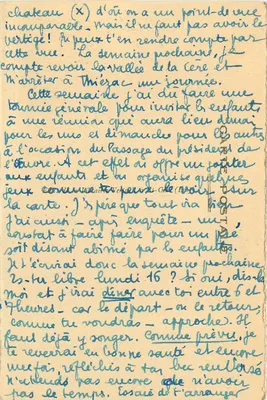 chateau (x) d'où on a un point de vue
incomparable - mais il ne faut pas avoir le
vertige ! Tu peux t'en rendre compte par
cette vue. La semaine prochaine, je
compte revoir la vallée de la Cère et
m'arrêter à Thiézac un journée.
Cette semaine, j'ai dû faire une
tournée générale pour inviter les enfants
à une réunion qui aura lieu demain
pour les uns et dimanche pour les autres
à l'occasion du Passage du président de
l'œuvre. A cet effet on offre un goûter
aux enfants et on organise quelques
jeux comme tu peux de voir sur
la carte. J'espère que tout va
J'ai aussi - après enquête - un
constat à faire faire pour un pré
soit disant abimé par les enfants.
Je t'écrirai donc la semaine prochaine.
Es-tu libre lundi 16 ? Si oui, dis le
moi et j'irai dîner avec toi entre 6 et
7 heures - car le départ - ou le retour,
comme tu voudras - approche. Il
faut déjà y songer. Comme prévu, je
te reverrai en bonne santé et encore
une fois, réfléchis à
n'attends pas encore n'avoir
pas le temps. Essaie de t'arranger